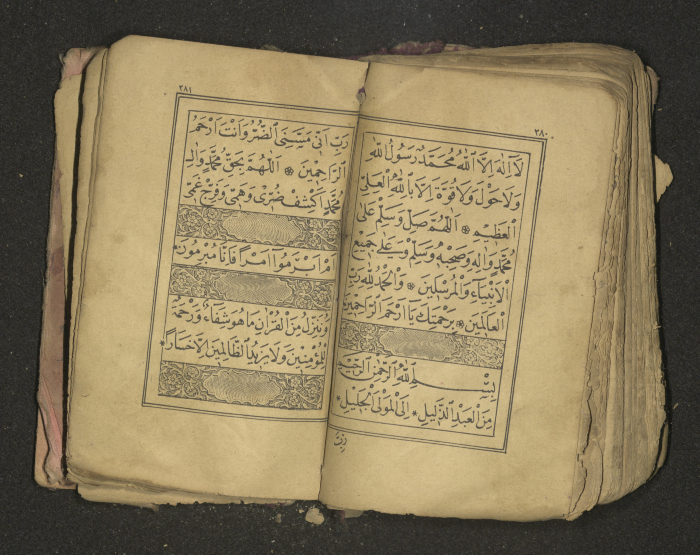 ٢٨٠
لَا اِلٰهَ اِلَّا اللّٰهُ مُحَمَّدٌ رَسُولُ اللّٰهِ
وَلَا حَوْلَ وَلَا قُوَّةَ اِلَّا بِاللّٰهِ الْعَلِىِّ
الْعَظِيمِ * اَللّٰهُمَّ صَلِّ وَسَلِّمْ عَلٰى
مُحَمَّدٍ وَاٰلِهِ وَصَحْبِهِ وَسَلِّمْ وَعَلٰى جَمِيعِ
الْاَنْبِيَاءِ وَالْمُرْسَلِينَ * وَالْحَمْدُ لِلّٰهِ رَبِّ
الْعَالَمِينَ * بِرَحْمَتِكَ يَا اَرْحَمَ الرَّاحِمِينَ
بِسْمِ اللّٰهِ الرَّحْمٰنِ الرَّحِيمِ
مِنَ الْعَبْدِ الذَّلِيلِ * اِلَى الْمَوْلَى الْجَلِيلِ *
رَبِّ
٢٨١
رَبِّ اَنِّى مَسَّنِىَ الضُّرُّ وَاَنْتَ اَرْحَمُ
الرَّاحِمِينَ * اَللّٰهُمَّ بِحَقِّ مُحَمَّدٍ وَاٰلِ
مُحَمَّدٍ اِكْشِفْ ضُرِّى وَهَمِّى وَفَرِّجْ غَمِّى
اَمْ اَبْرَمُوا اَمْرًا فَاِنَّا مُبْرِمُونَ *
وَنُنَزِّلُ مِنَ الْقُرْاٰنِ مَا هُوَ شِفَاءٌ وَرَحْمَةٌ
لِلْمُؤْمِنِينَ وَلَا يَزِيدُ الظَّالِمِينَ اِلَّا خَسَارًا *